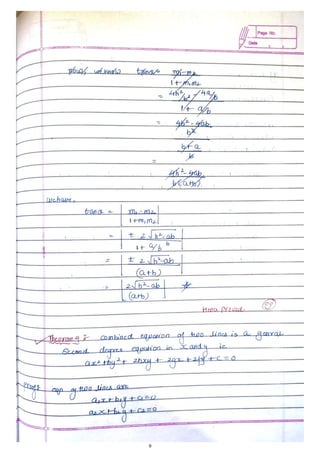 Page No.
Date
tanα = m1-m2
1+m1m2
= 4h²/b² - 4a/b
1+ a/b
= 4h² - 4ab
b²
b+a
b
=
4h²-4ab
b(a+b)
we have,
tanα = | m1-m2 |
| 1+m1m2 |
= | ± 2√h²-ab |
| 1+ a/b b |
= | ± 2√h²-ab |
| (a+b) |
| 2√h²-ab |
| (a+b) |
Hence proved
Theorem 9 : combined equation of two lines is a general
second degree equation in x and y ie
ax²+by²+ 2hxy + 2gx+2fy+c=0
Proof eqn of two lines are
a1x+b1y+c1=0
a2x+b2y+c2=0
9